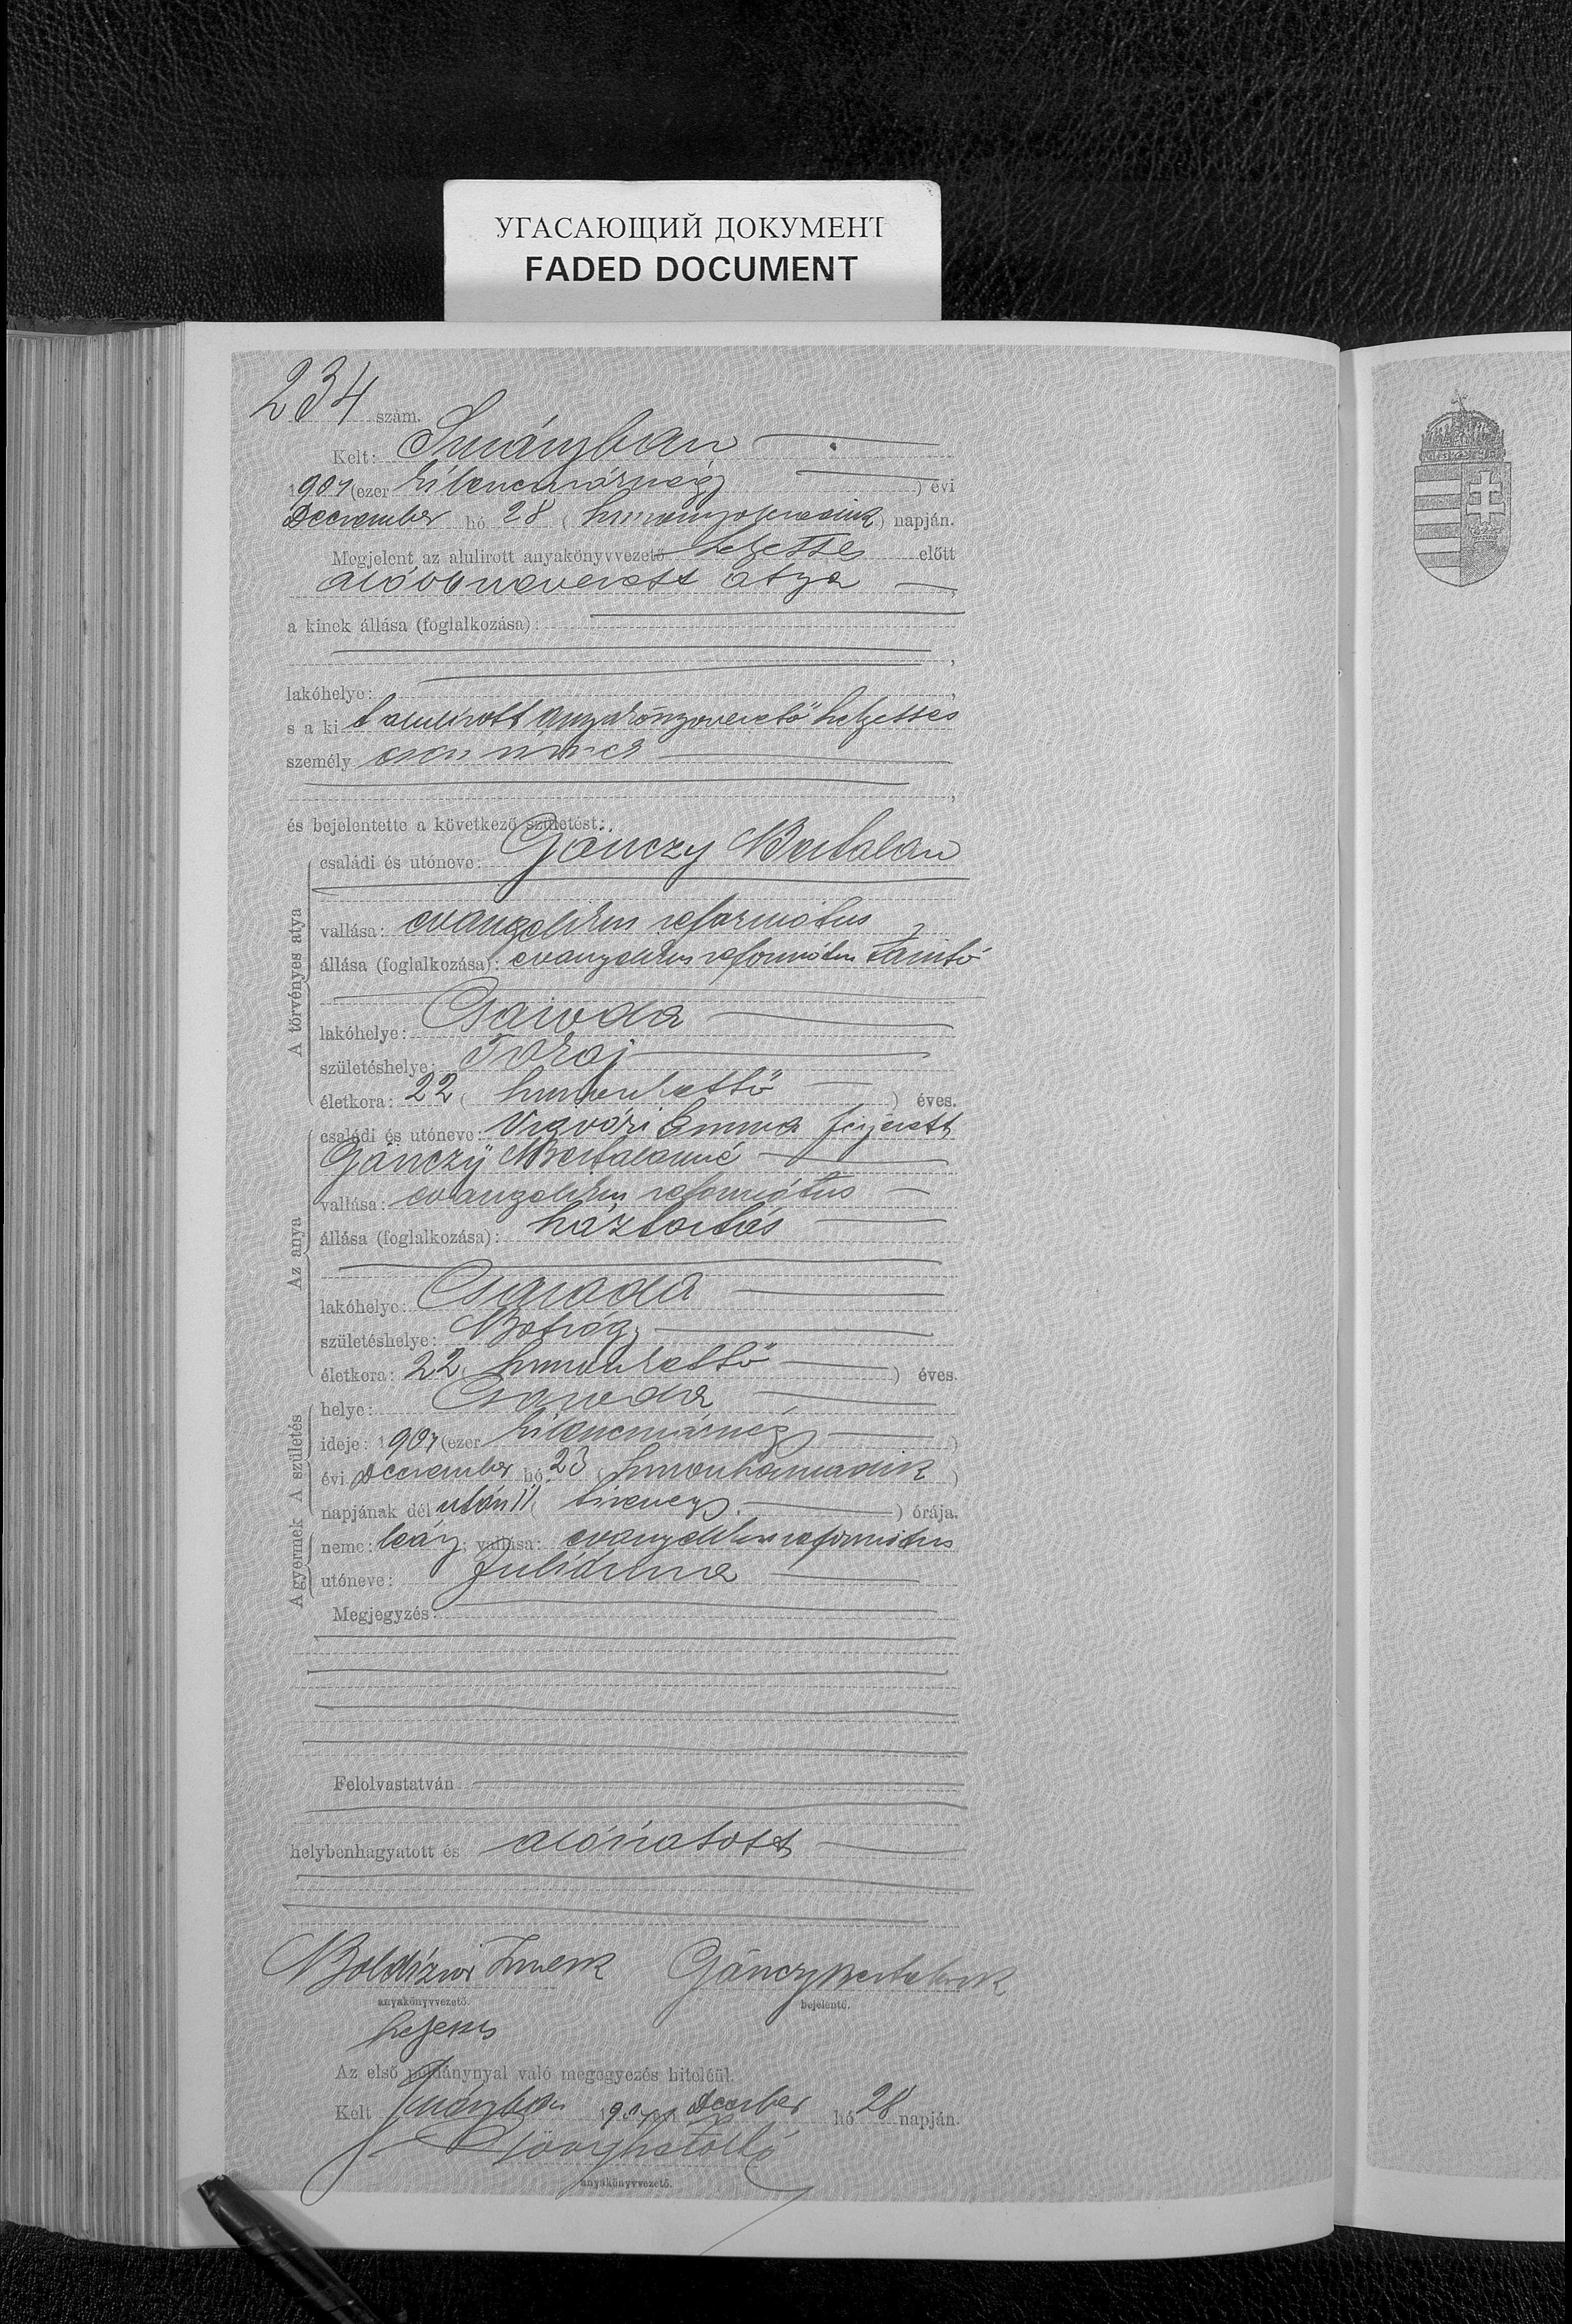 УГАСАЮЩИЙ ДОКУМЕНТ
FADED DOCUMENT
234 szám.
Kelt:
1904 (ezer kilenczszáznégy ) évi
December hó 28 ( huszonnyolczadik ) napján.
Megjelent az alulirott anyakönyvvezető helyettes előtt
alább nevezett atya
a kinek állása (foglalkozása):
lakóhelye:
s a ki t alulirott anyakönyvvezető helyettes
személy
és bejelentette a következő születést:
A törvényes atya
családi és utóneve: Gönczy Bertalan
vallása: evangelikus református
állása (foglalkozása): evangelikus református tanitó
lakóhelye: Csaroda
születéshelye:
életkora: 22 ( huszonkettő ) éves.
Az anya
családi és utóneve: Emma férjezett
Gönczy Bertalanné
vallása: evangelikus református
állása (foglalkozása): háztartás
lakóhelye: Csaroda
születéshelye: Botrágy
életkora: 22 huszonkettő ) éves.
A születés
helye: Csaroda
ideje: 1904 (ezer kilenczszáznégy )
évi December hó 23 ( huszonharmadik )
napjának dél után 11 ( tizenegy ) órája.
A gyermek
neme: leány; vallása: evangelikus református
utóneve: Juliánna
Megjegyzés:
Felolvastatván
helybenhagyatott és aláiratott
Gönczy Bertalan
anyakönyvvezető. bejelentő.
helyettes
Az első példánynyal való megegyezés hiteléül.
Kelt 1904 évi December hó 28 napján.
anyakönyvvezető.